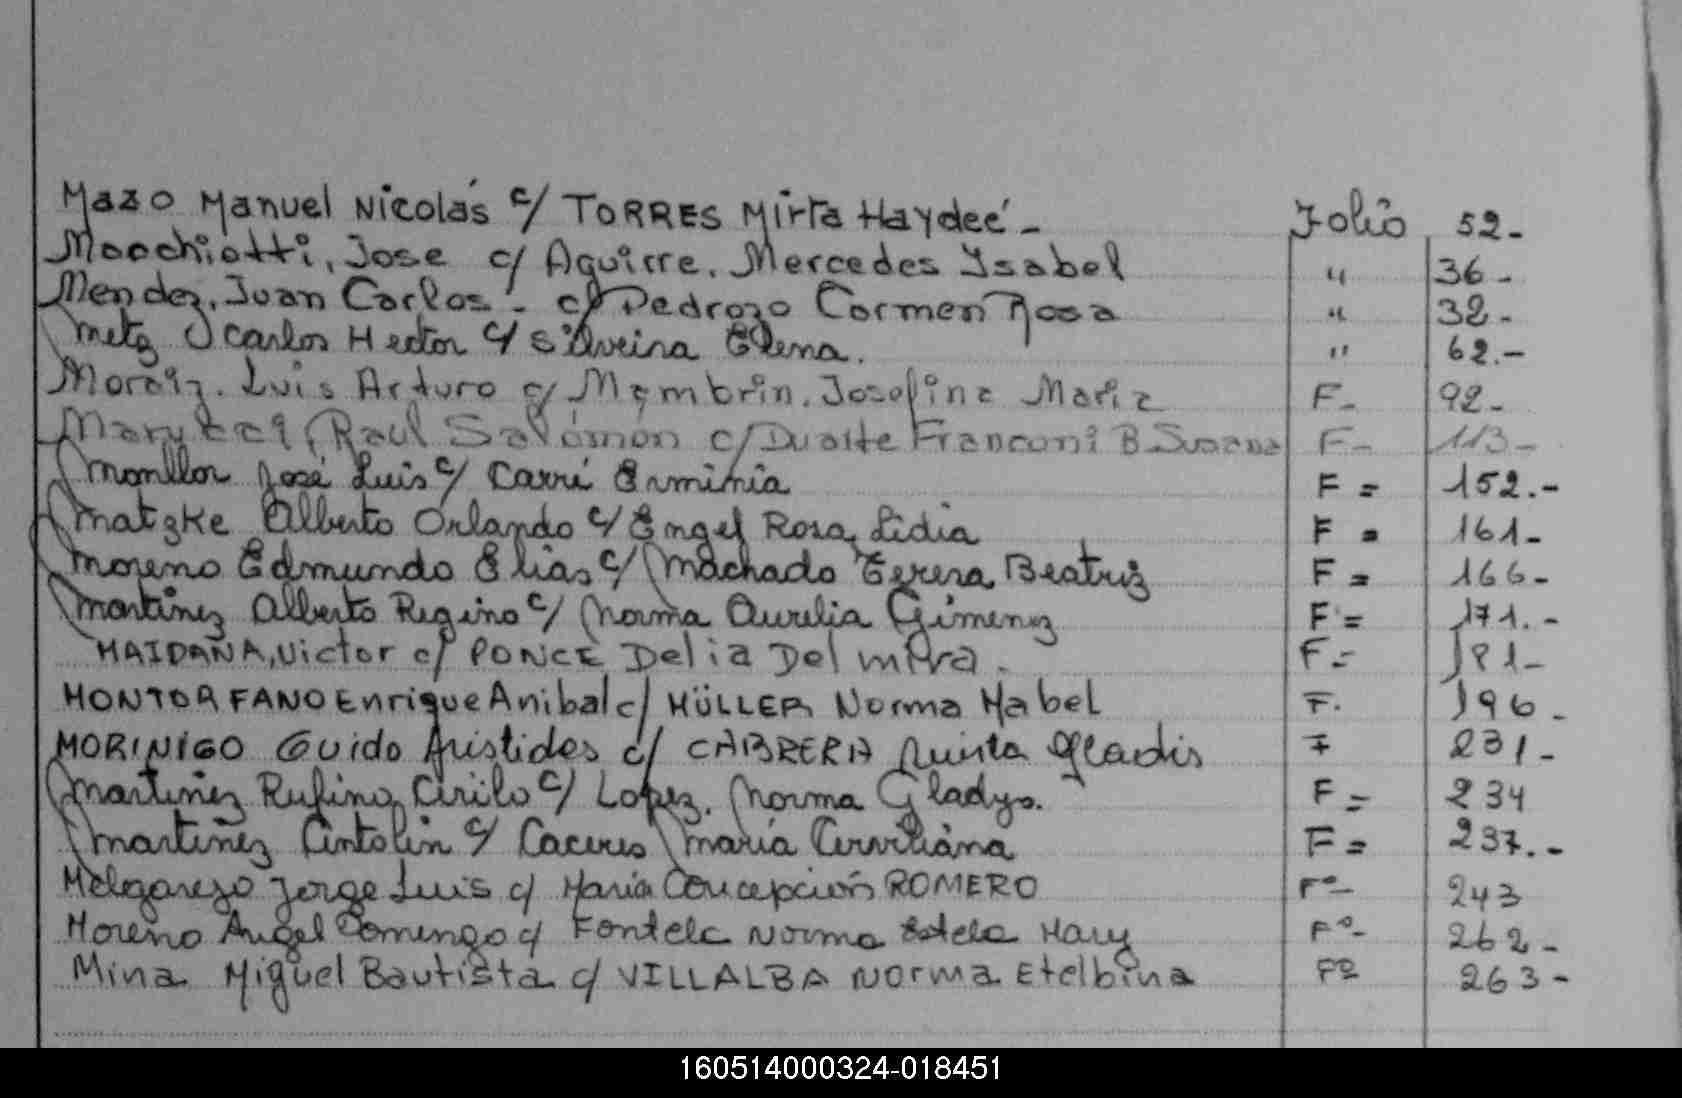 Mazo Manuel Nicolás c/ TORRES Mirta Haydeé - Folio 52-
Mocchiotti, Jose c/ Aguirre, Mercedes Ysabel " 36-
Mendez, Juan Carlos - c/ Pedrozo Carmen Rosa " 32-
Metz Carlos Hector c/ Silveira Elena. " 62.-
Luis Arturo c/ Mambrin, Josefina Maria F- 92-
Raul Salomón c/ Duarte Franconi B Susana F- 113-
Monllor José Luis c/ Carré Erminia F= 152.-
Matzke Alberto Orlando c/ Engel Rosa Lidia F= 161-
Moreno Edmundo Elias c/ Machado Teresa Beatriz F= 166-
Martinez Alberto Regino c/ Norma Aurelia Gimenez F= 171.-
MAIDANA, Victor c/ PONCE Delia Delmira. F- 181-
MONTORFANO Enrique Anibal c/ MÜLLER Norma Mabel F. 196.
MORINIGO Guido Aristides c/ CABRERA Quinta Gladis F 231-
Martinez Rufino Cirilo c/ Lopez, Norma Gladys. F= 234
Martinez Antolin c/ Caceres Maria F= 237.-
Melgarejo Jorge Luis c/ Maria Concepción ROMERO Fº- 243
Moreno Angel Domingo c/ Fontela Norma Estela Mary Fº- 262-
Mina Miguel Bautista c/ VILLALBA Norma Etelbina Fº 263-
160514000324-018451